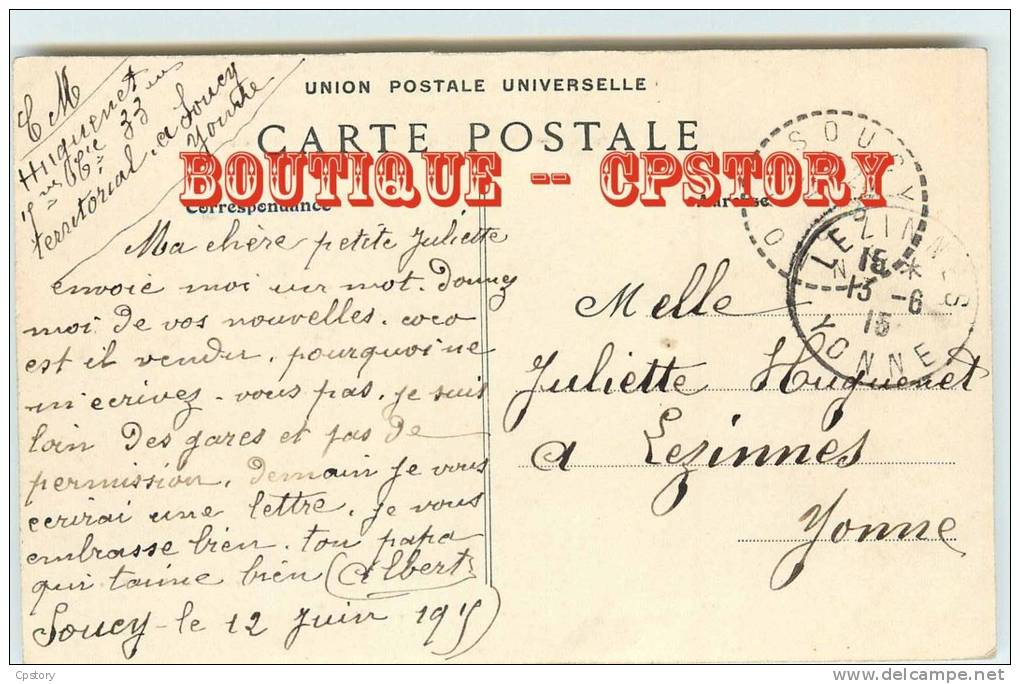 UNION POSTALE UNIVERSELLE
CARTE POSTALE
BOUTIQUE -- CPSTORY
Correspondance
Adresse
C M
Huguenet
5me Cie 33em
territorial. a Soucy
Yonne
Ma chère petite Juliette
envoie moi un mot. Donnez
moi de vos nouvelles. coco
est il vendu. pourquoi ne
m'ecrivez-vous pas. je suis
loin des gares et pas de
permission. demain je vous
ecrirai une lettre. je vous
embrasse bien. ton papa
qui taime bien Albert
Soucy-le 12 Juin 1915
Melle
Juliette Huguenet
a Lezinnes
Yonne
SOUCY
LEZINNES
15 *
13 -6
15
YONNE
Cpstory
www.delcampe.net